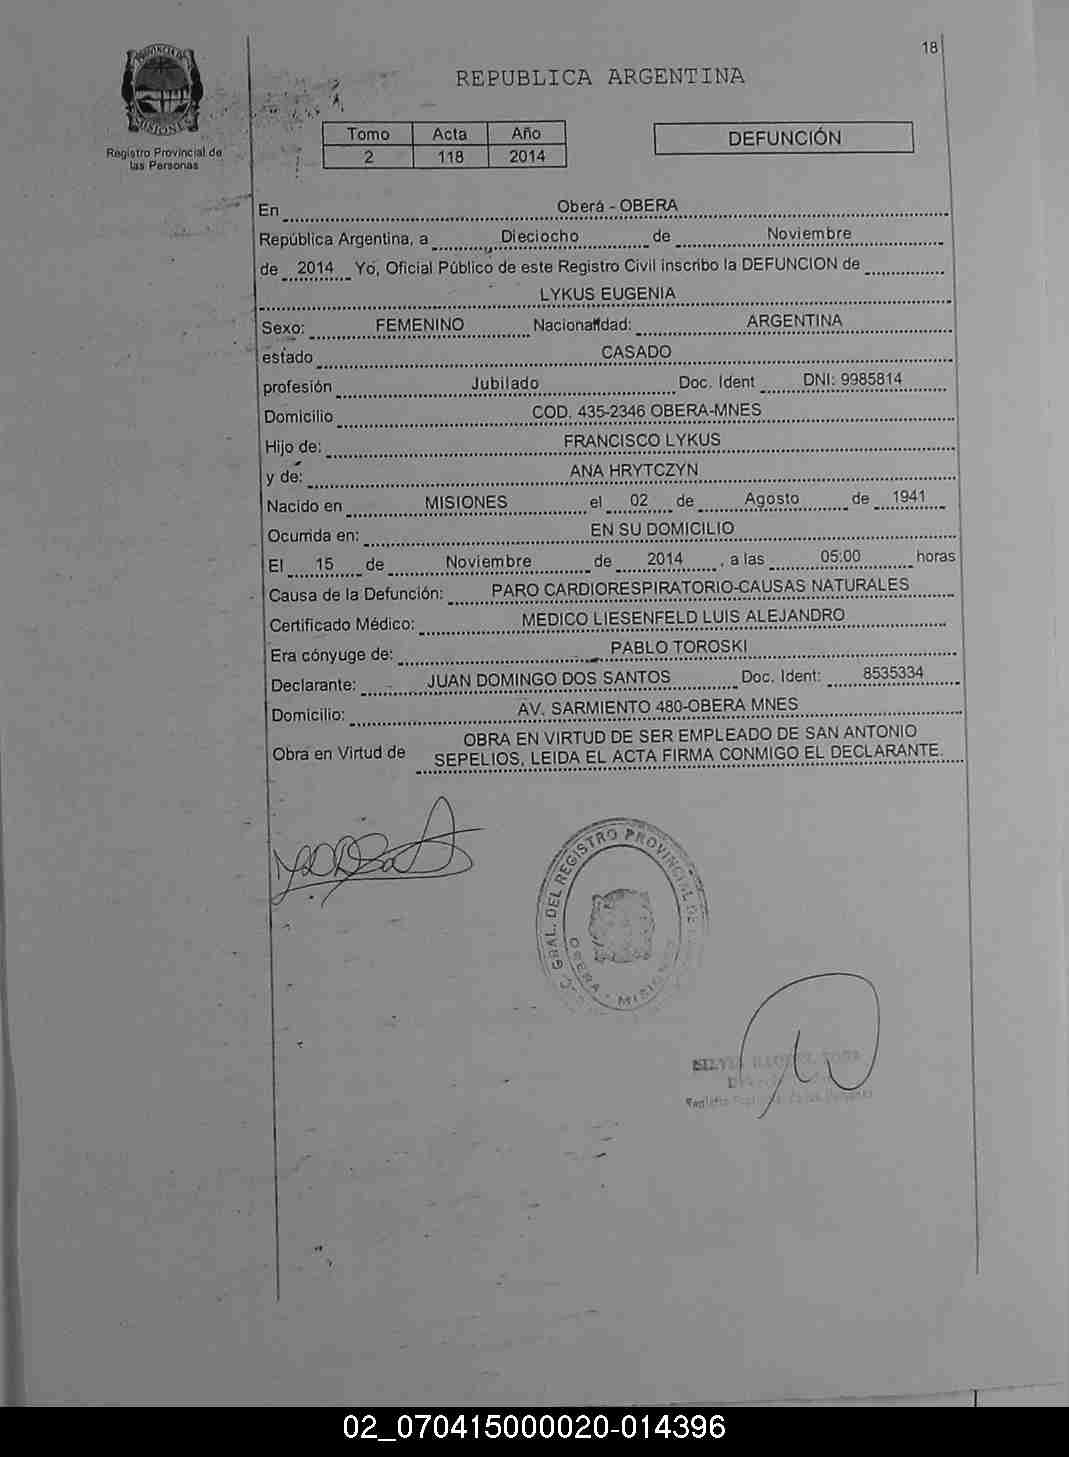 18
REPUBLICA ARGENTINA
PROVINCIA DE
MISIONES
Registro Provincial de
las Personas
Tomo Acta Año
2 118 2014
DEFUNCIÓN
En Oberá - OBERA
República Argentina, a Dieciocho de Noviembre
de 2014 Yo, Oficial Público de este Registro Civil inscribo la DEFUNCION de
LYKUS EUGENIA
Sexo: FEMENINO Nacionalidad: ARGENTINA
estado CASADO
profesión Jubilado Doc. Ident DNI: 9985814
Domicilio COD. 435-2346 OBERA-MNES
Hijo de: FRANCISCO LYKUS
y de: ANA HRYTCZYN
Nacido en MISIONES el 02 de Agosto de 1941
Ocurrida en: EN SU DOMICILIO
El 15 de Noviembre de 2014 , a las 05:00 horas
Causa de la Defunción: PARO CARDIORESPIRATORIO-CAUSAS NATURALES
Certificado Médico: MEDICO LIESENFELD LUIS ALEJANDRO
Era cónyuge de: PABLO TOROSKI
Declarante: JUAN DOMINGO DOS SANTOS Doc. Ident: 8535334
Domicilio: AV. SARMIENTO 480-OBERA MNES
Obra en Virtud de OBRA EN VIRTUD DE SER EMPLEADO DE SAN ANTONIO
SEPELIOS, LEIDA EL ACTA FIRMA CONMIGO EL DECLARANTE.
GRAL. DEL REGISTRO PROVINCIAL DE
OBERA - MISIONES
02_070415000020-014396